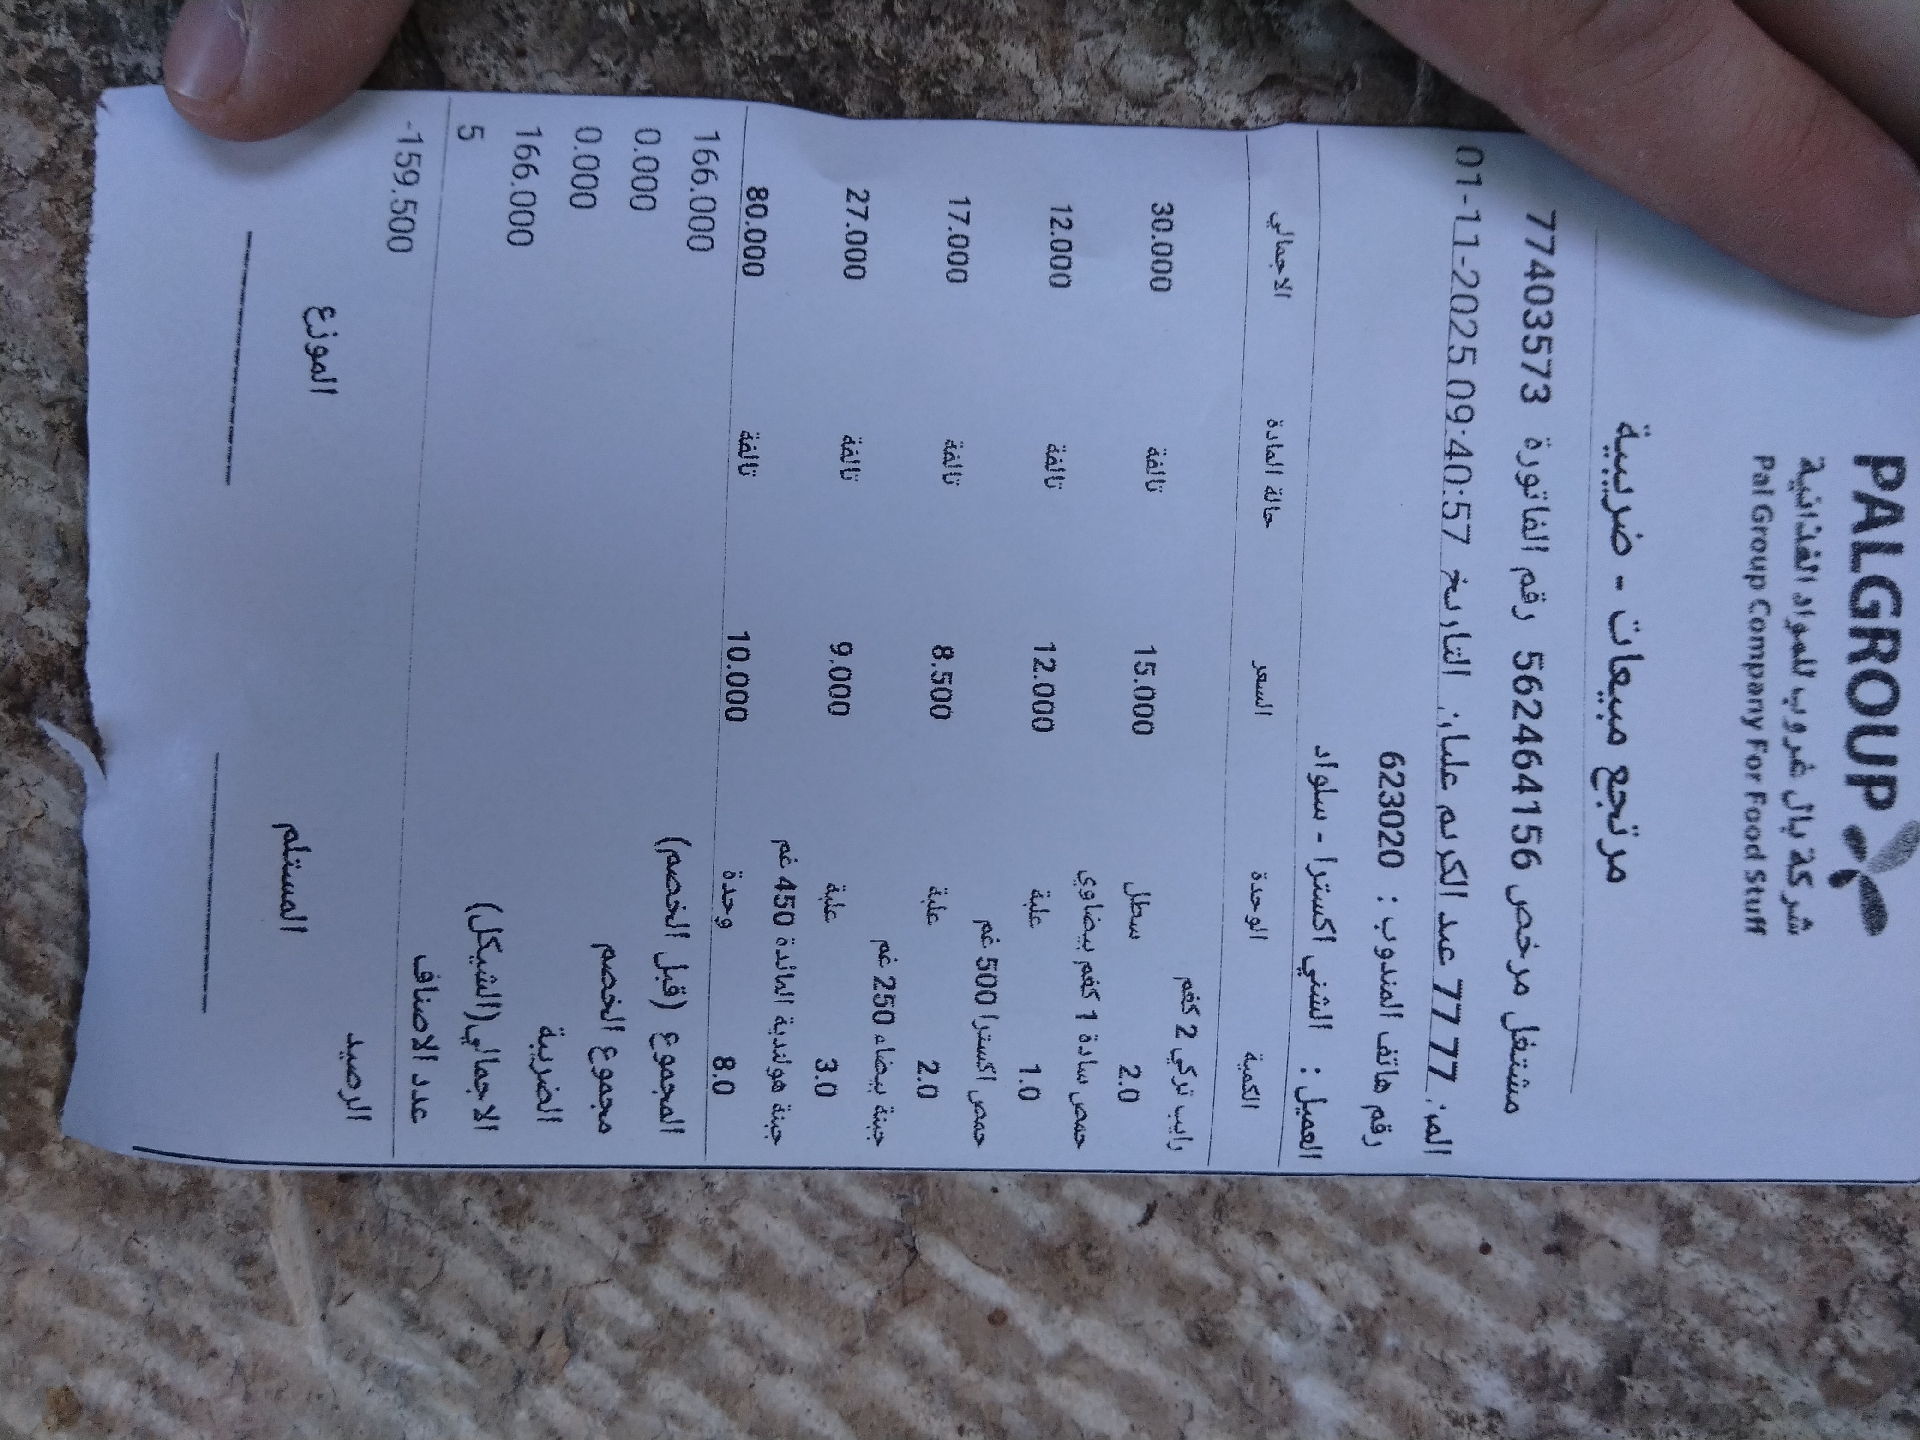 PALGROUP
شركة بال غروب للمواد الغذائية
Pal Group Company For Food Stuff
مرتجع مبيعات - ضريبية
مشتغل مرخص 562464156 رقم الفاتورة 77403573
77 77 عبد الكريم عليان التاريخ 01-11-2025 09:40:57
رقم هاتف المندوب : 623020
العميل : الشني اكسترا - سلواد
الكمية الوحدة السعر حالة المادة الاجمالي
رايب تركي 2 كغم
2.0 سطل 15.000 تالفة 30.000
حمص سادة 1 كغم بيضاوي
1.0 علبة 12.000 تالفة 12.000
حمص اكسترا 500 غم
2.0 علبة 8.500 تالفة 17.000
جبنة بيضاء 250 غم
3.0 علبة 9.000 تالفة 27.000
جبنة هولندية المائدة 450 غم
8.0 وحدة 10.000 تالفة 80.000
المجموع (قبل الخصم) 166.000
مجموع الخصم 0.000
الضريبة 0.000
الاجمالي(الشيكل) 166.000
عدد الاصناف 5
الرصيد -159.500
المستلم الموزع